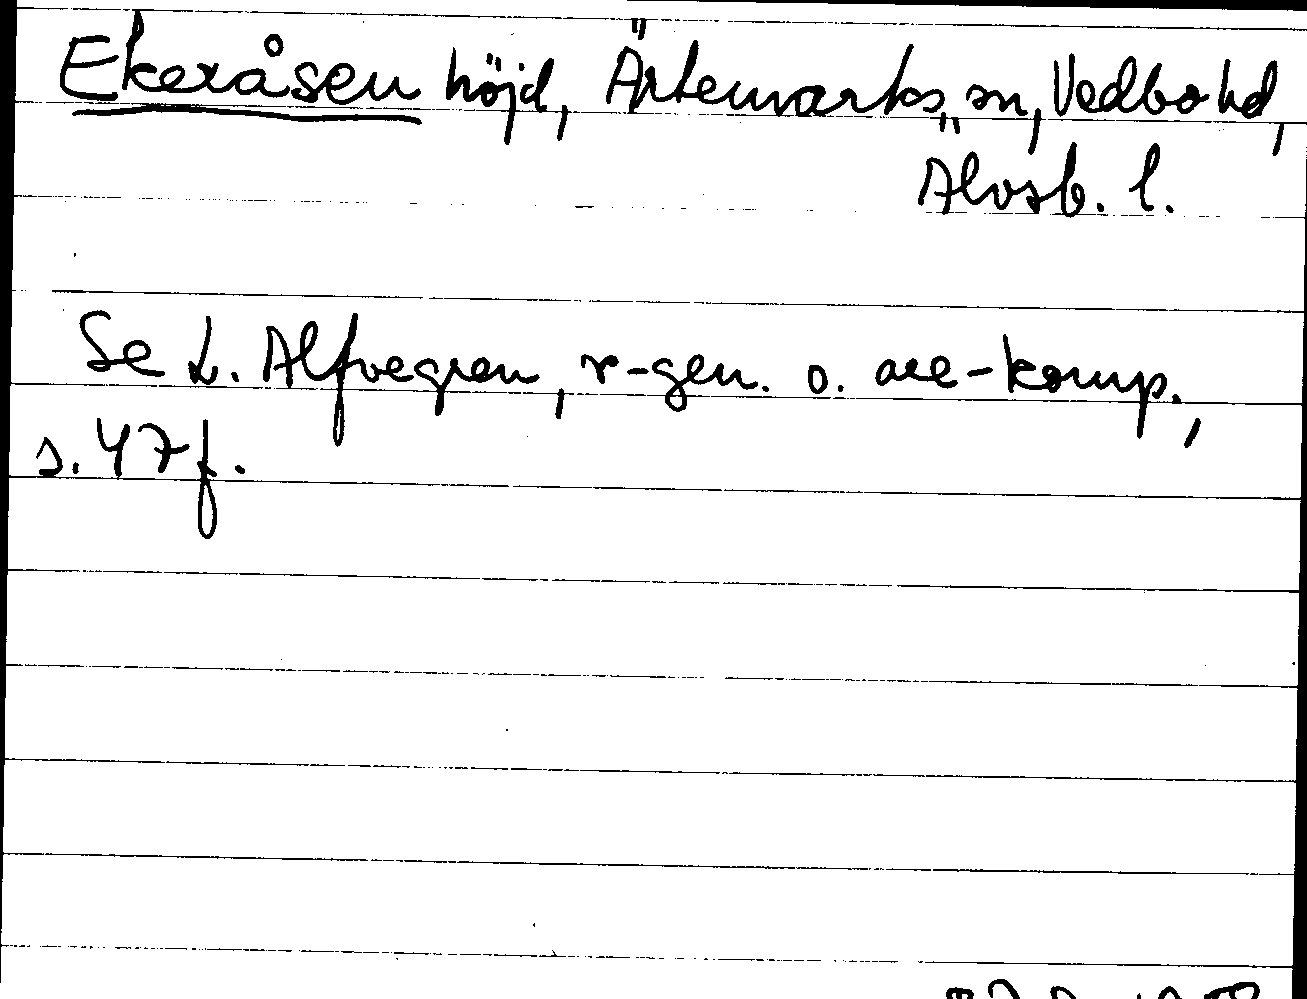 Ekeråsen höjd, Ärtemarks sn, Vedbo hd,
Älvsb. l.
Se L. Alfvegren, r-gen. o. are-komp.,
s. 47 f.